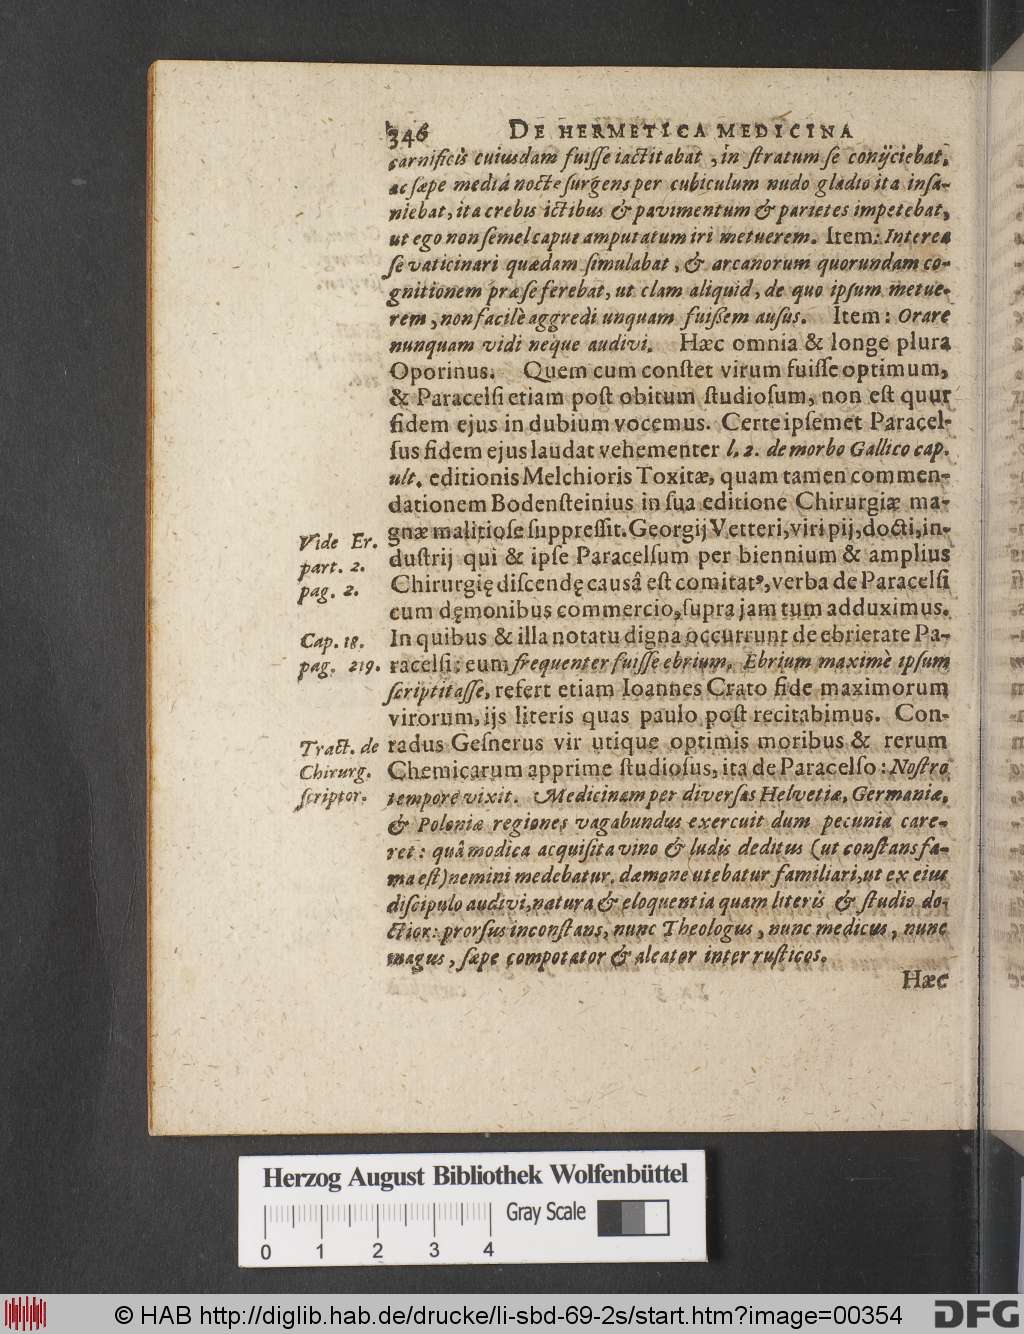 346 DE HERMETICA MEDICINA
carnificis cuiusdam fuisse iactitabat, in stratum se coniiciebat,
ac sæpe mediâ nocte surgens per cubiculum nudo gladio ita insa-
niebat, ita crebis ictibus & pavimentum & parietes impetebat,
ut ego non semel caput amputatum iri metuerem. Item: Interea
se vaticinari quædam simulabat, & arcanorum quorundam co-
gnitionem præ se ferebat, ut clam aliquid, de quo ipsum metue-
rem, non facilè aggredi unquam fuißem ausus. Item: Orare
nunquam vidi neque audivi. Hæc omnia & longe plura
Oporinus. Quem cum constet virum fuisse optimum,
& Paracelsi etiam post obitum studiosum, non est quur
fidem ejus in dubium vocemus. Certe ipsemet Paracel-
sus fidem ejus laudat vehementer l. 2. de morbo Gallico cap.
ult. editionis Melchioris Toxitæ, quam tamen commen-
dationem Bodensteinius in sua editione Chirurgiæ ma-
gnæ malitiose suppressit. Georgij Vetteri, viri pij, docti, in-
Vide Er.
part. 2.
pag. 2.
dustrij qui & ipse Paracelsum per biennium & amplius
Chirurgię discendę causâ est comitatꝰ, verba de Paracelsi
cum dęmonibus commercio, supra jam tum adduximus.
Cap. 18.
pag. 219.
In quibus & illa notatu digna occurrunt de ebrietate Pa-
racelsi; eum frequenter fuisse ebrium. Ebrium maximè ipsum
scriptitasse, refert etiam Ioannes Crato fide maximorum
virorum, ijs literis quas paulo post recitabimus. Con-
Tract. de
Chirurg.
scriptor.
radus Gesnerus vir utique optimis moribus & rerum
Chemicarum apprime studiosus, ita de Paracelso: Nostro
tempore vixit. Medicinam per diversas Helvetiæ, Germaniæ,
& Poloniæ regiones vagabundus exercuit dum pecunia care-
ret: quâ modica acquisita vino & ludis deditus (ut constans fa-
ma est) nemini medebatur. dæmone utebatur familiari, ut ex eius
discipulo audivi, natura & eloquentia quam literis & studio do-
ctior: prorsus inconstans, nunc Theologus, nunc medicus, nunc
magus, sæpe compotator & aleator inter rusticos.
Hæc
Herzog August Bibliothek Wolfenbüttel
Gray Scale
0 1 2 3 4
© HAB http://diglib.hab.de/drucke/li-sbd-69-2s/start.htm?image=00354
DFG